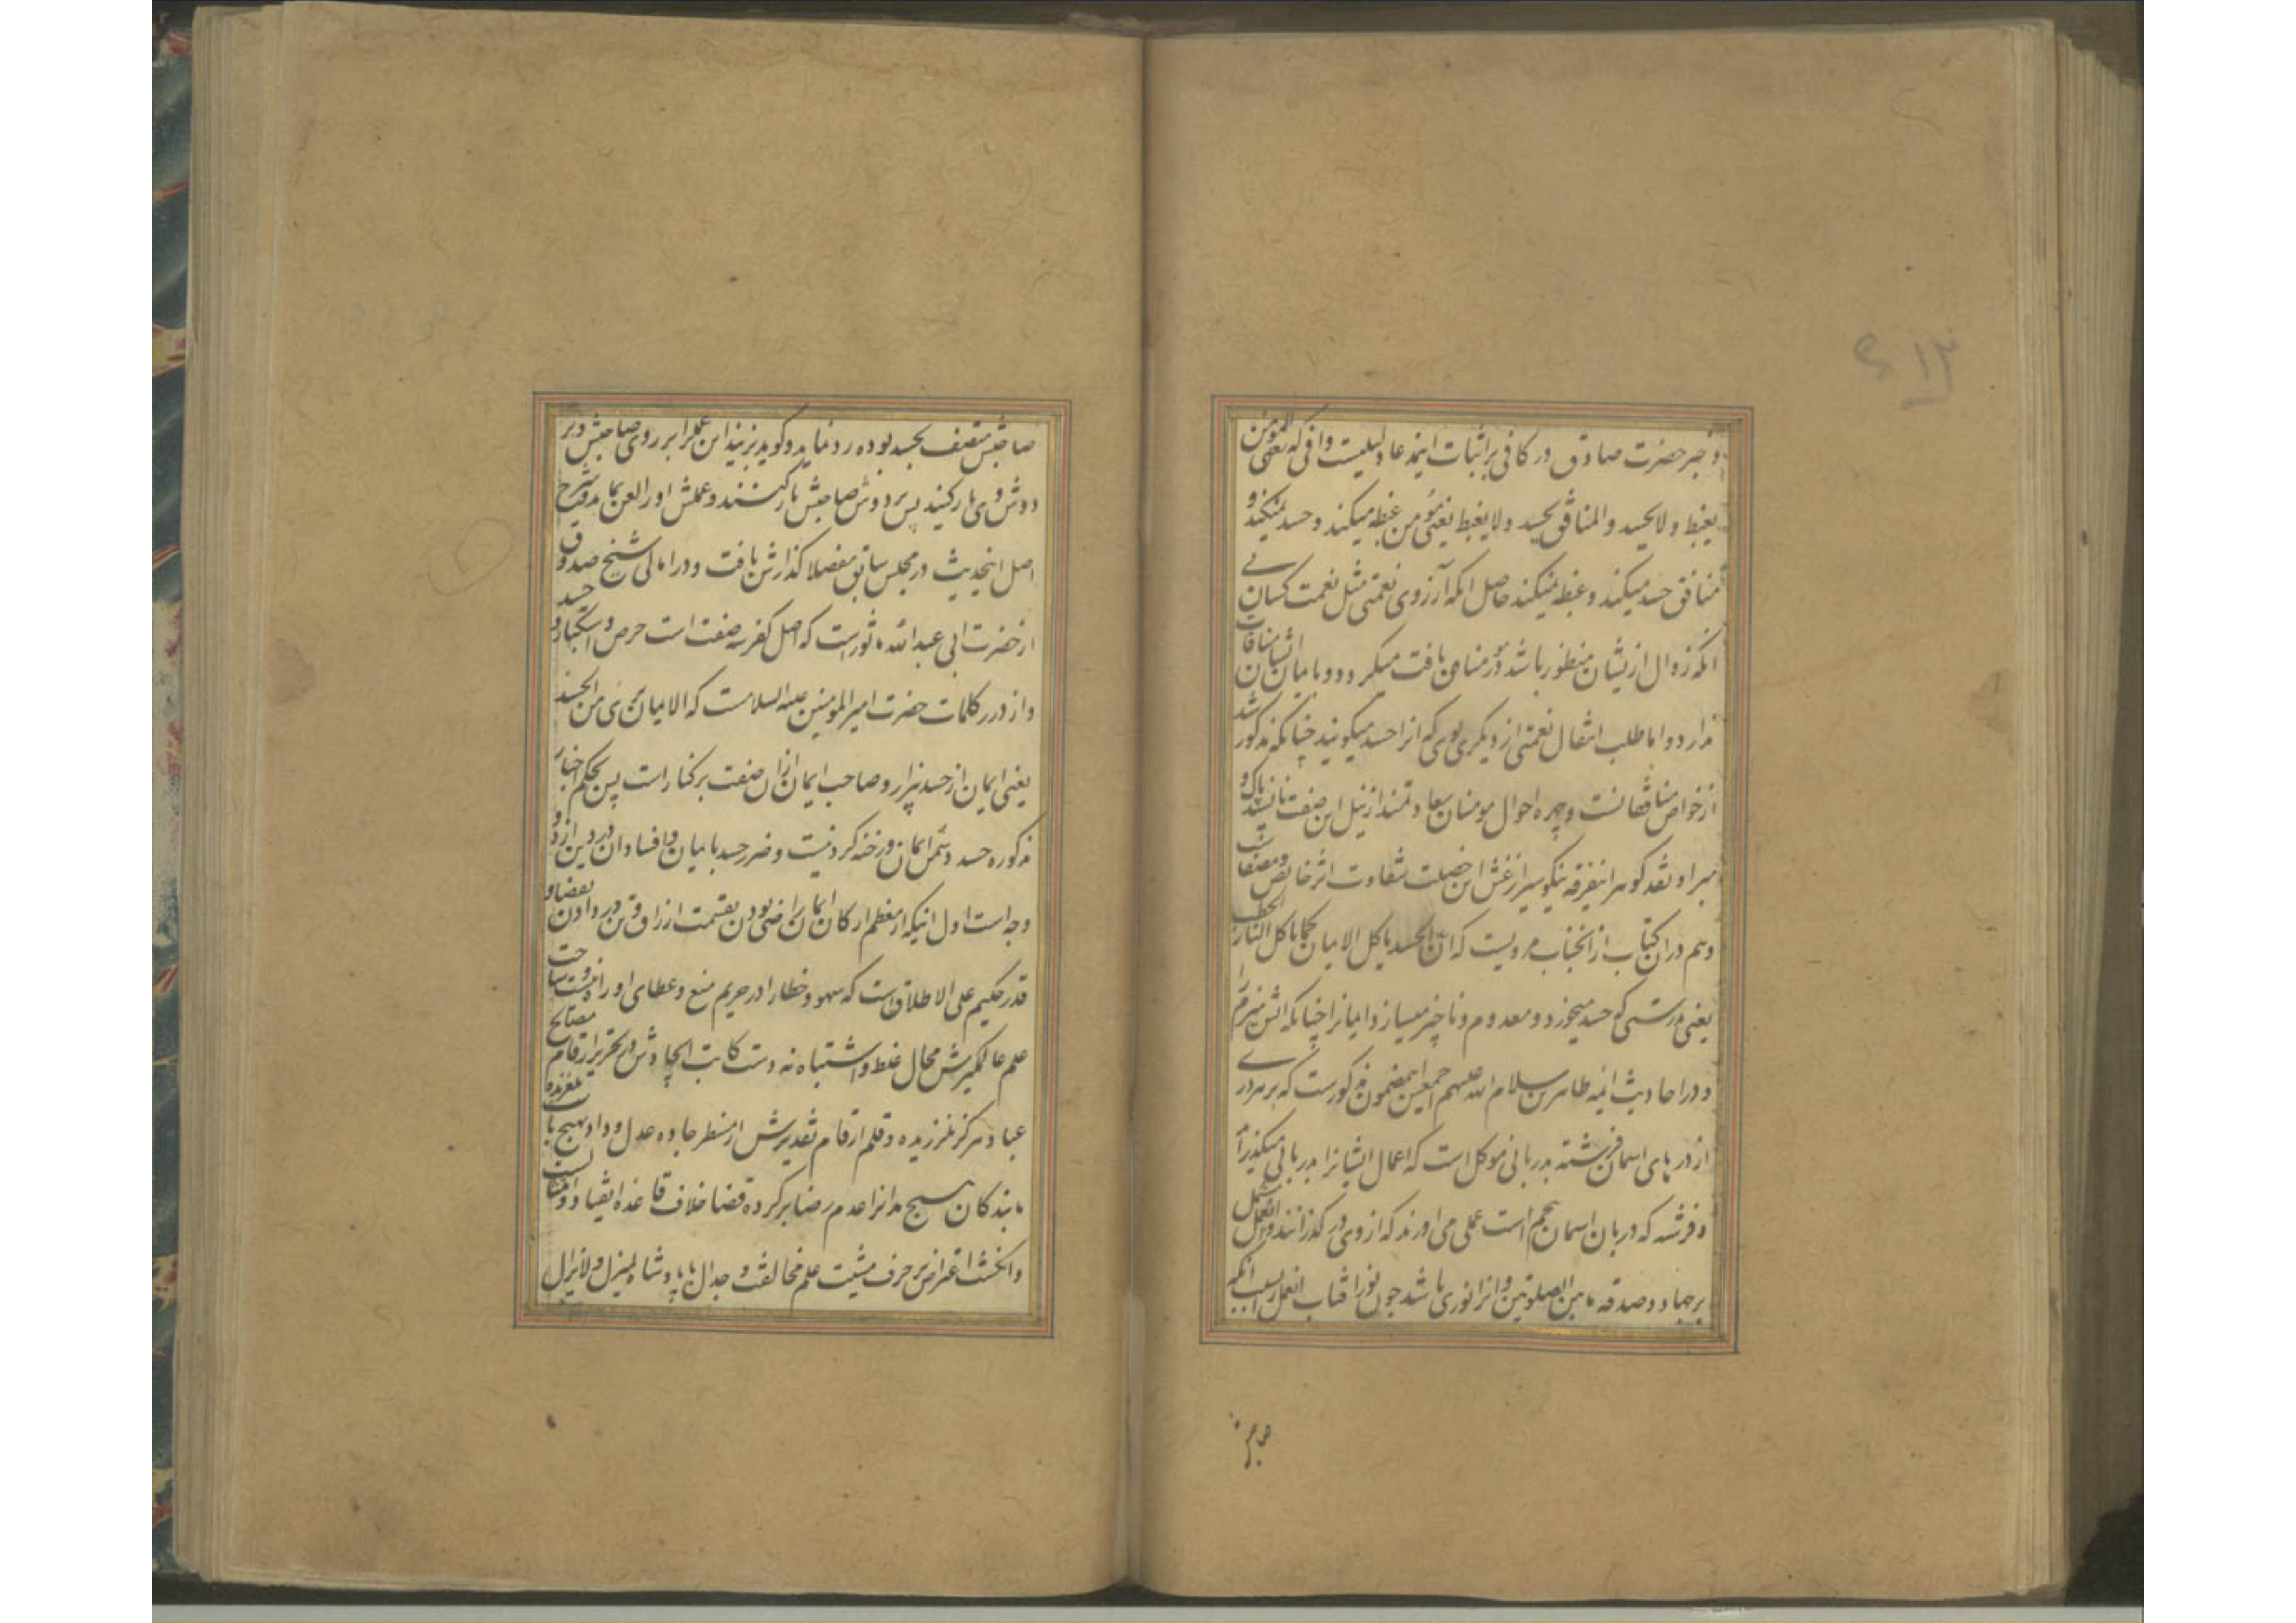 و خبر حضرت صادق در کافی بر اثبات اینمدعا دلیلیست وافی که المومن
یغبط و لا یحسد و المنافق یحسد و لا یغبط یعنی مؤمن غبطه میکند و حسد نمیکند و
منافق حسد میکند و غبطه نمیکند حاصل انکه آرزوی نعمتی مثل نعمت کسان بی
انکه زوال از یشان منظور باشد در مؤمنان یافت میکردد و با ایمان ایشان منافات
ندارد و اما طلب انتقال نعمتی از دیکری بوی که انرا حسد میکویند چنانکه مذکور شد
از خواص منافقانست و چهره احوال مومنان سعادتمند از نیل این صفت ناپسند پاک و
مبرا و نقد کوهر اینفرقه نیکو سیر از غش این خصلت شقاوت اثر خالص و مصفاست
و هم در ان کتاب از انجناب مرویست که ان الحسد یاکل الایمان کما یاکل النار الحطب
یعنی بدرستی که حسد میخورد و معدوم و ناچیز میسازد ایمانرا چنانکه اتش هیزم را
و در احادیث ائمه طاهرین سلام الله علیهم اجمعین اینمضمون مذکورست که بر هر دری
از درهای اسمان فرشته بدربانی موکل است که اعمال ایشانرا بدربانی میکذرانند
و فرشته که دربان اسمان پنجم است عملی می اورند که از وی در کذرانند و انعمل مشتمل
بر جهاد و صدقه ما بین الصلوتین و انرا نوری باشد چون نور افتاب انعمل بسبب انکه
صاحبش
صاحبش متصف بحسد بوده رد نماید و کوید بزنید این عمل را بر روی صاحبش و بر
دوش وی بار کنید پس بر دوش صاحبش بار کنند و عملش او را لعن نماید و شرح
اصل اینحدیث در مجلس سابق مفصلا کذارش یافت و در امالی شیخ صدوق
از حضرت ابی عبدالله ماثور است که اصل کفر سه صفت است حرص و استکبار و حسد
و از درر کلمات حضرت امیرالمومنین علیه السلامست که الایمان بری من الحسد
یعنی ایمان از حسد بیزار و صاحب ایمان از ان صفت برکنار است پس بحکم اخبار
مذکوره حسد دشمن ایمان و رخنه کر دینست و ضرر حسد بایمان و افساد ان در دین از دو
وجه است اول اینکه از معظم ارکان ایمان راضی بودن بقسمت ارزاق و تن در دادن بقضا و
قدر حکیم علی الاطلاق است که سهو و خطا را در حریم منع و عطای او راه نیست و ساحت
علم عالمکیرش محال غلط و اشتباه نه دست کاتب ایجادش در تحریر ارقام مصالح
عباد هرکز نلرزیده و قلم ارقام تقدیرش از مسطر جاده عدل و داد بهیچ باب نلغزیده
ما بندکان هیچ مدانرا عدم رضا بر کرده قضا خلاف قاعده ایقیاد و امتنانست
و انکشت اعتراض بر حرف مشیت علم مخالفت و جدال با پادشاه لم یزل و لا یزال